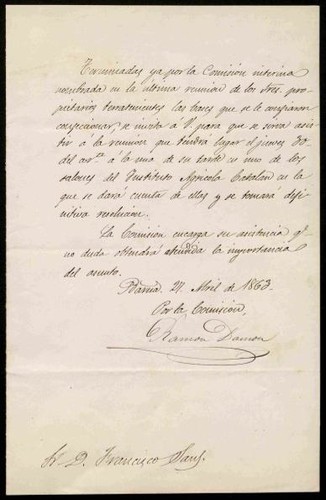 Terminadas ya por la Comisión interina
nombrada en la última reunion de los Sres. pro-
pietarios terratenientes las bases que se le confiaron
confeccionar, se invita á V. para que se sirva asis-
tir á la reunion que tendrá lugar el jueves 30
del cor.te á la una de su tarde en uno de los
salones del Instituto Agricola Catalan en la
que se dará cuenta de ellas y se tomará defi-
nitiva resolucion.
La Comision encarga su asistencia q.e
no duda obtendrá atendida la importancia
del asunto.
Barna. 27 Abril de 1863.
Por la Comision,
Ramon Damon
Sr. D. Francisco Sans.